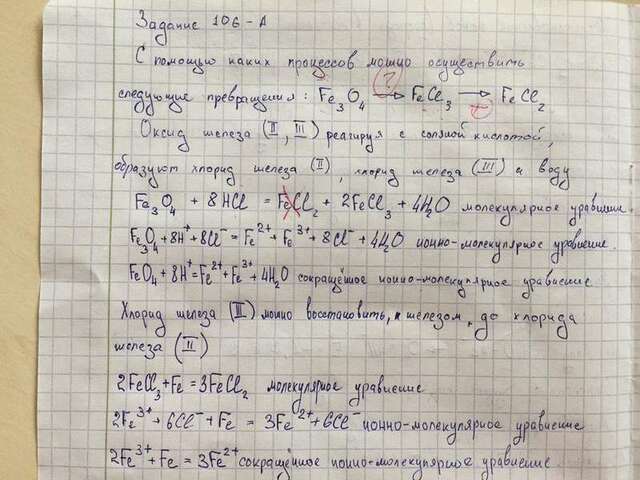 Задание 106-А
С помощью каких процессов можно осуществить
следующие превращения: Fe3O4 (?)→ FeCl3 → FeCl2
Оксид железа (II, III) реагируя с соляной кислотой,
образуют хлорид железа (II), хлорид железа (III) и воду
Fe3O4 + 8HCl = FeCl2 + 2FeCl3 + 4H2O молекулярное уравнение
Fe3O4 + 8H+ + 8Cl- = Fe2+ + Fe3+ + 8Cl- + 4H2O ионно-молекулярное уравнение.
FeO4 + 8H+ = Fe2+ + Fe3+ + 4H2O сокращённое ионно-молекулярное уравнение
Хлорид железа (III) можно восстановить, железом, до хлорида
железа (II)
2FeCl3 + Fe = 3FeCl2 молекулярное уравнение
2Fe3+ + 6Cl- + Fe = 3Fe2+ + 6Cl- ионно-молекулярное уравнение
2Fe3+ + Fe = 3Fe2+ сокращённое ионно-молекулярное уравнение.